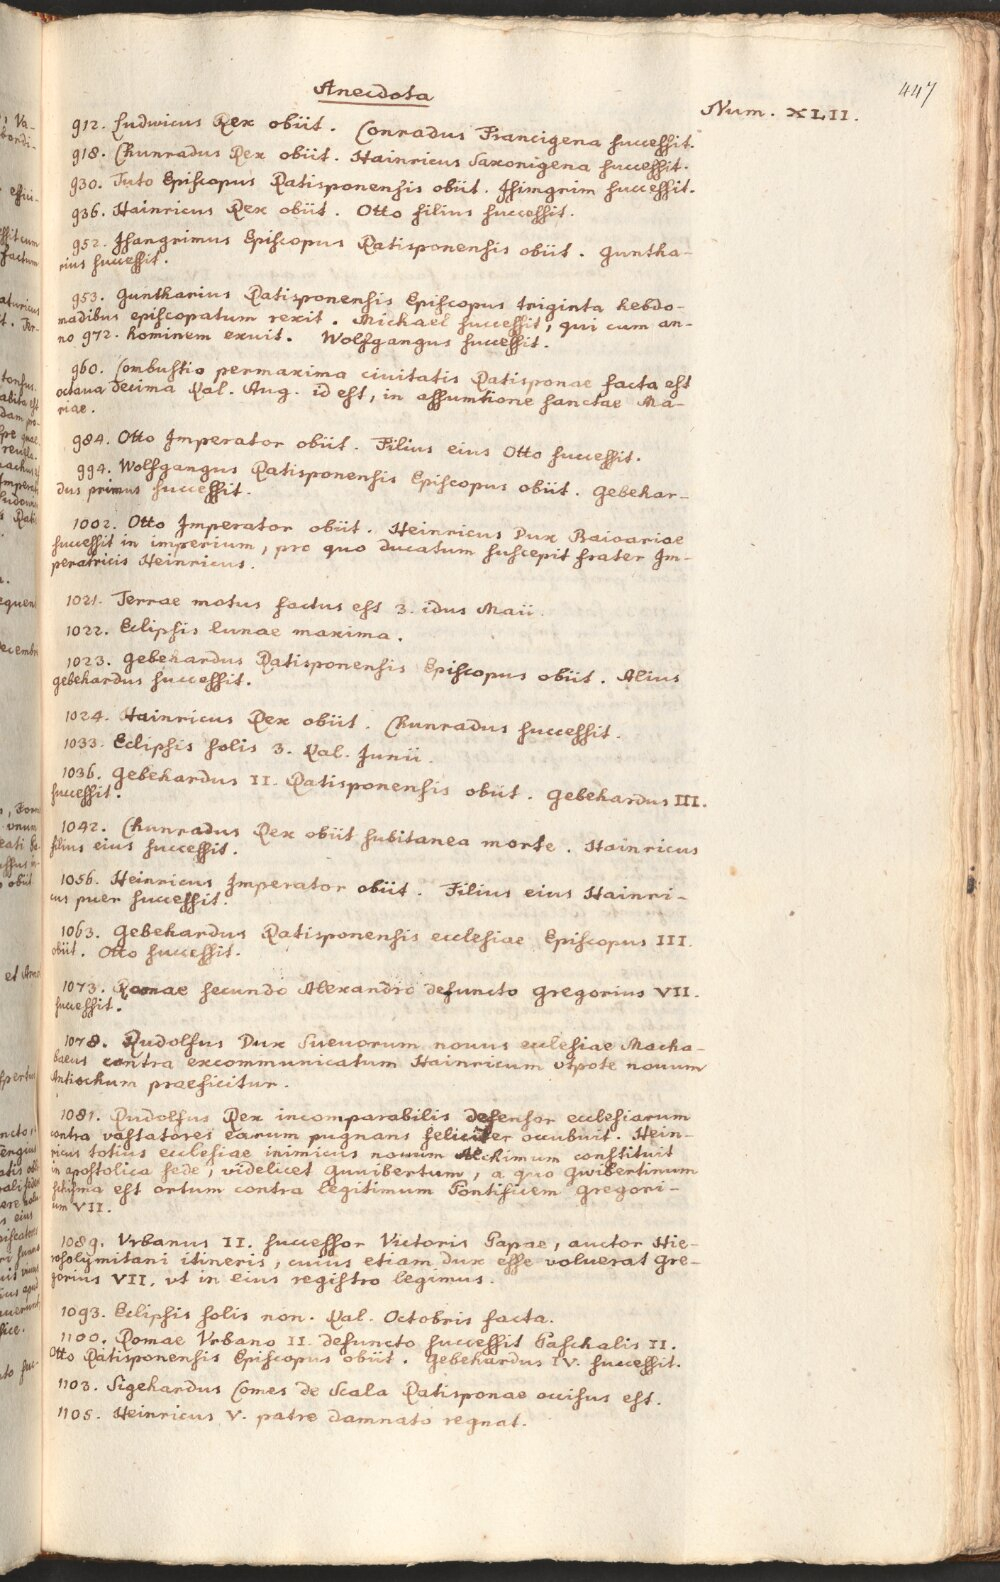 447
Anecdota
Num. XLII.
912. Ludwicus Rex obiit. Conradus Francigena successit.
918. Chunradus Rex obiit. Hainricus Saxonigena successit.
930. Tuto Episcopus Ratisponensis obiit. Isimgrim successit.
936. Hainricus Rex obiit. Otto filius successit.
952. Isangrimus Episcopus Ratisponensis obiit. Guntha-
rius successit.
953. Guntharius Ratisponensis Episcopus triginta hebdo-
madibus episcopatum rexit. Michael successit, qui cum an-
no 972. hominem exuit. Wolfgangus successit.
960. Combustio permaxima ciuitatis Ratisponae facta est
octaua decima Kal. Aug. id est, in assumtione sanctae Ma-
riae.
984. Otto Imperator obiit. Filius eius Otto successit.
994. Wolfgangus Ratisponensis Episcopus obiit. Gebehar-
dus primus successit.
1002. Otto Imperator obiit. Heinricus Dux Baioariae
successit in imperium, pro quo ducatum suscepit frater Im-
peratricis Heinricus.
1021. Terrae motus factus est 3. idus Maii.
1022. Eclipsis lunae maxima.
1023. Gebehardus Ratisponensis Episcopus obiit. Alius
gebehardus successit.
1024. Hainricus Rex obiit. Chunradus successit.
1033. Eclipsis solis 3. Kal. Junii.
1036. Gebehardus II. Ratisponensis obiit. Gebehardus III.
successit.
1042. Chunradus Rex obiit subitanea morte. Hainricus
filius eius successit.
1056. Heinricus Imperator obiit. Filius eius Hainri-
cus puer successit.
1063. Gebehardus Ratisponensis ecclesiae Episcopus III.
obiit. Otto successit.
1073. Romae secundo Alexandro defuncto Gregorius VII.
successit.
1078. Rudolfus Dux Sueuorum nouus ecclesiae Macha-
baeus contra excommunicatum Hainricum vtpote nouum
Antiochum praeficitur.
1081. Rudolfus Rex incomparabilis defensor ecclesiarum
contra vastatores earum pugnans feliciter occubuit. Hein-
ricus totius ecclesiae inimicus nouum Alchimum constituit
in apostolica sede, videlicet Gunibertum, a quo Gwibertinum
schisma est ortum contra legitimum Pontificem Gregori-
um VII.
1089. Vrbanus II. successor Victoris Papae, auctor Hie-
rosolymitani itineris, cuius etiam dux esse voluerat Gre-
gorius VII. vt in eius registro legimus.
1093. Eclipsis solis non. Kal. Octobris facta.
1100. Romae Vrbano II. defuncto successit Paschalis II.
Otto Ratisponensis Episcopus obiit. Gebehardus IV. successit.
1103. Sigehardus Comes de Scala Ratisponae occisus est.
1105. Heinricus V. patre damnato regnat.